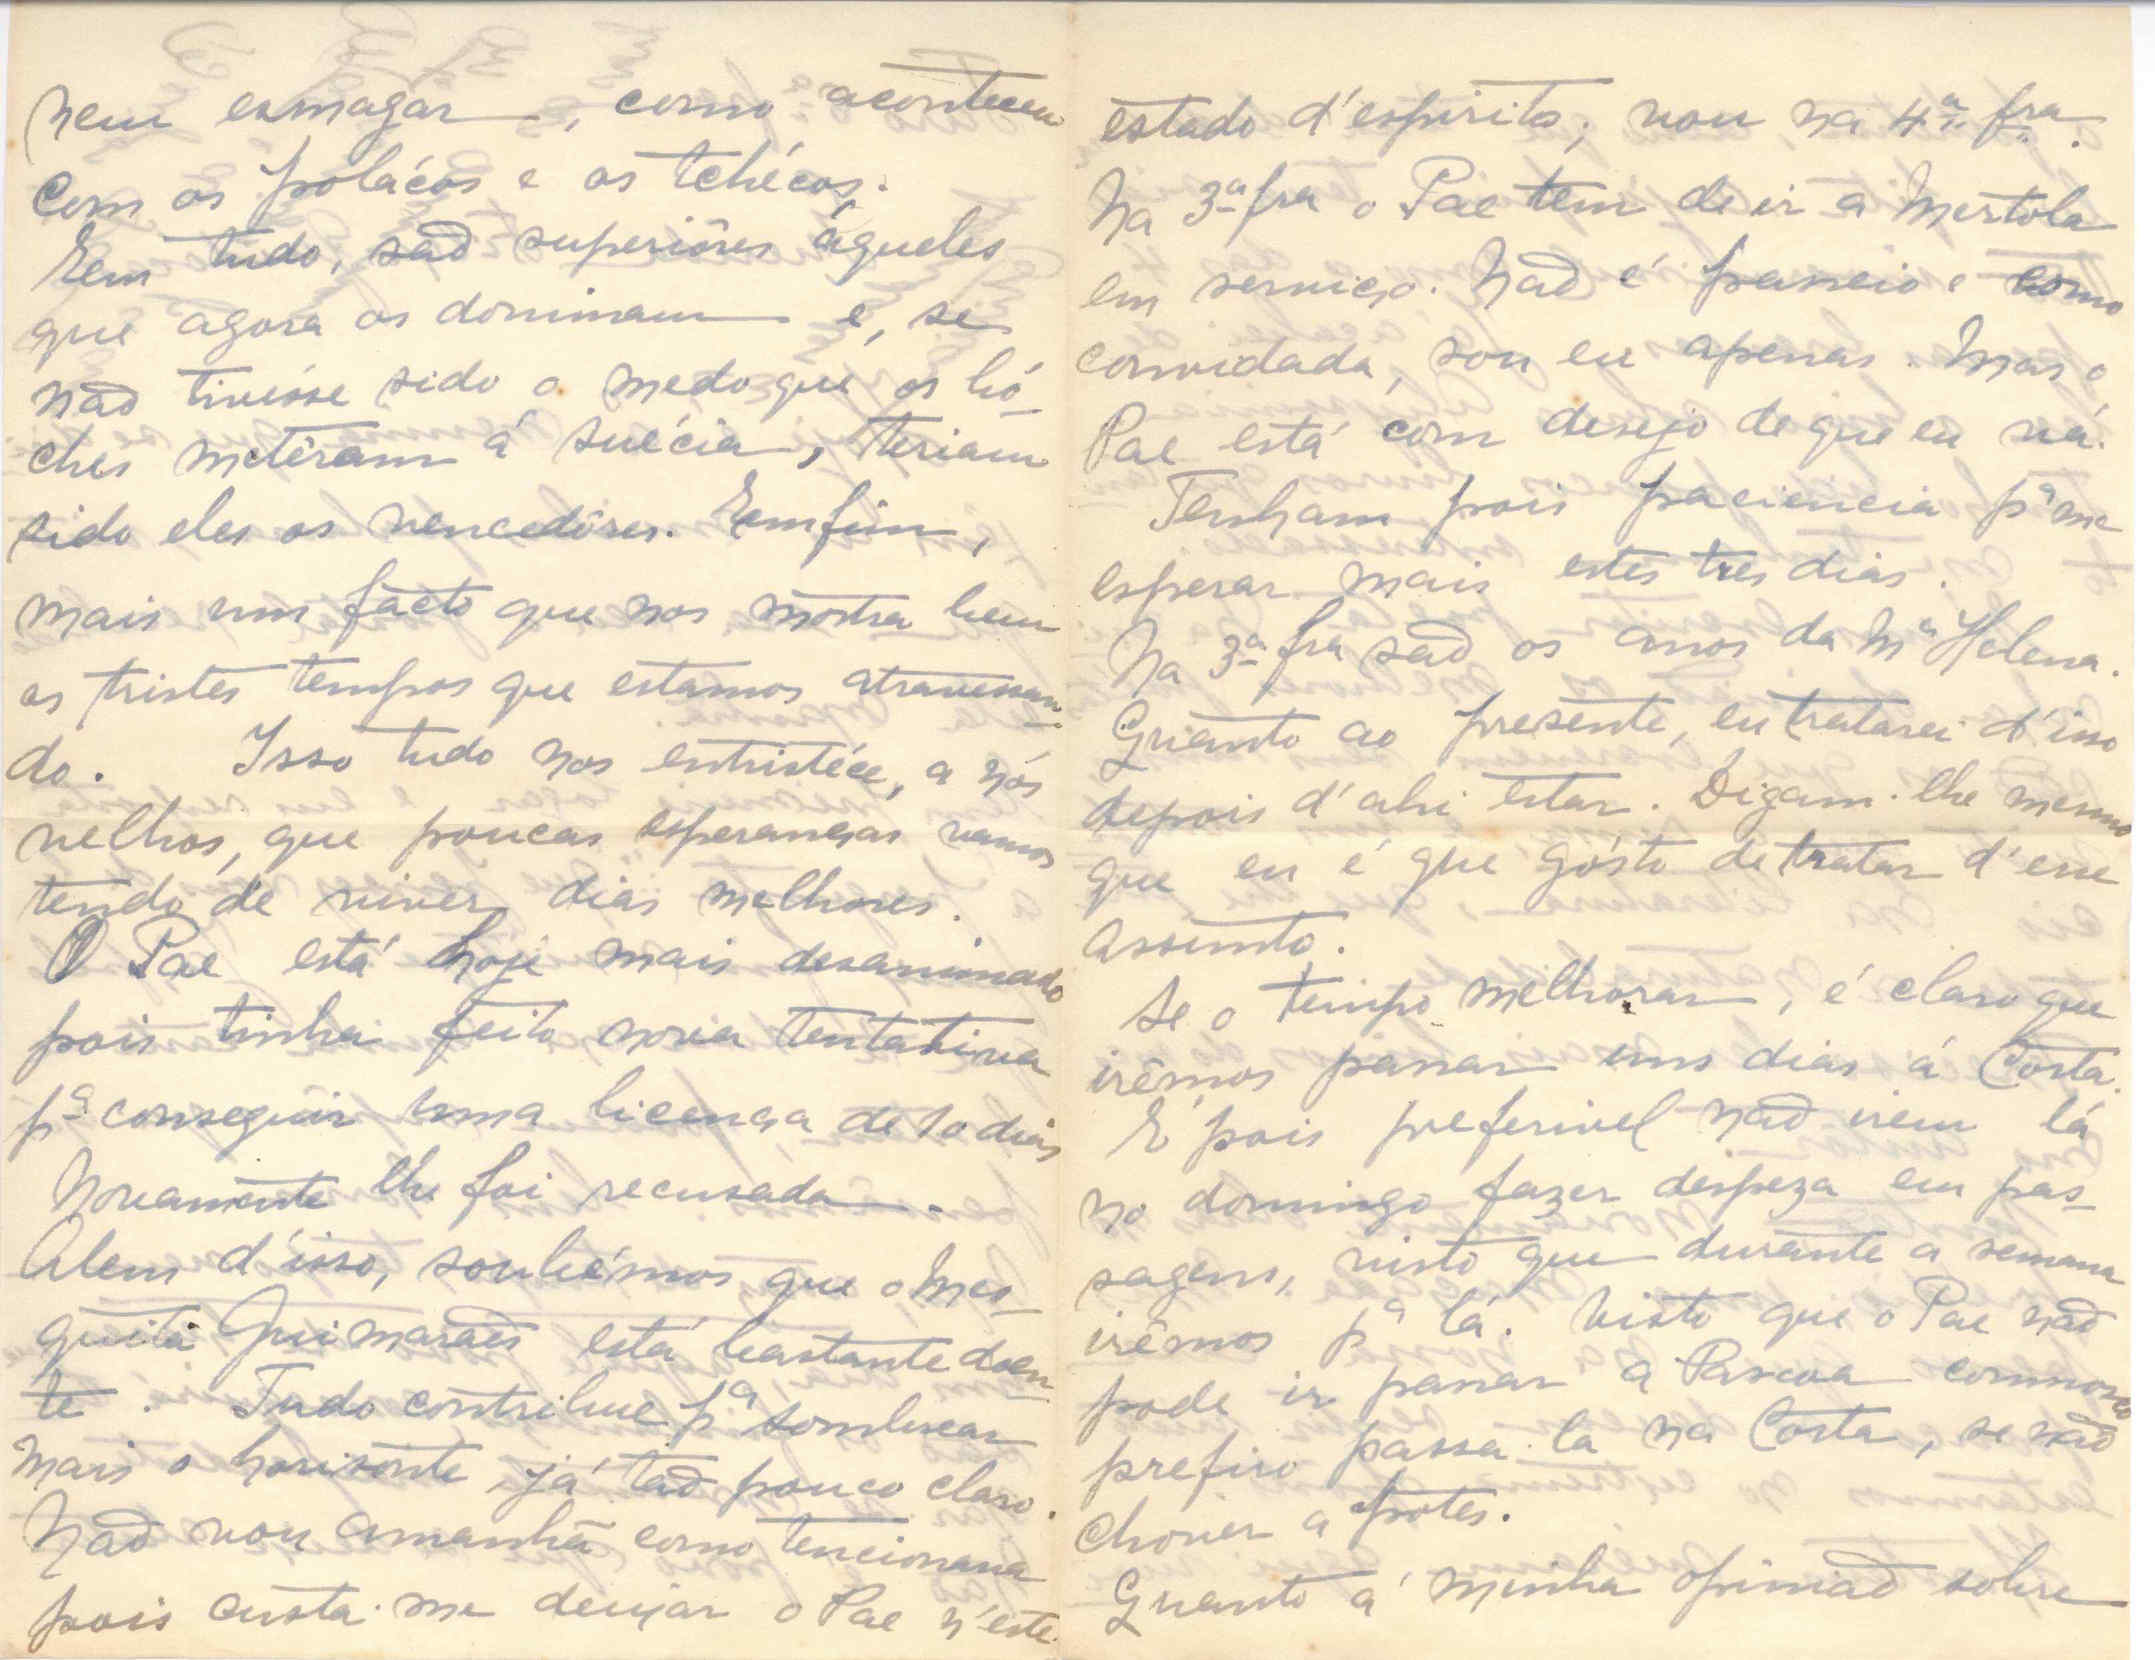 nem esmagar, como aconteceu
com os polácos e os tchécos.
Eem tudo, saõ superiôres áqueles
que agora os dominam e, se
naõ tivésse sido o medo que os bó-
ches metêram á Suécia, teriam
sido eles os vencedôres. Eemfim,
mais um facto que nos mostra bem
os tristes tempos que estamos atravessan-
do. Isso tudo nos entristéce, a nós
velhos, que poucas esperanças vamos
tendo de viver dias melhores.
O Pae está hoje mais desanimado
pois tinha feito nova tentativa
pª conseguir uma licença de 10 dias
Novamente lhe foi recusada.
Alem d'isso, soubémos que o Mes-
quita Guimarães está bastante doen-
te. Tudo contribue pª sombrear
mais o horisonte, já taõ pouco claro.
Naõ vou amanhã como tencionava
pois custa-me deixar o Pae n'este
estado d'espirito; vou na 4ª fra.
Na 3ª fra o Pae tem de ir a Mertola
em serviço. Naõ é passeio e como
convidada, sou eu apenas. Mas o
Pae está com desejo de que eu vá.
Tenham pois paciencia pª me
esperar mais estes tres dias.
Na 3ª fra saõ os anos da Mª Helena.
Quanto ao presente, eu tratarei d'isso
depois d'ahi estar. Digam-lhe mesmo
que eu é que gósto de tratar d'esse
assunto.
Se o tempo melhorar, é claro que
irêmos passar uns dias á Costa.
É pois preferivel naõ irem lá
no domingo fazer despeza em pas-
sagens, visto que durante a semana
irêmos pª lá. Visto que o Pae naõ
pode ir passar a Pascoa comnosco
prefiro passa-la na Costa, se naõ
chover a potes.
Quanto á minha opiniaõ sobre